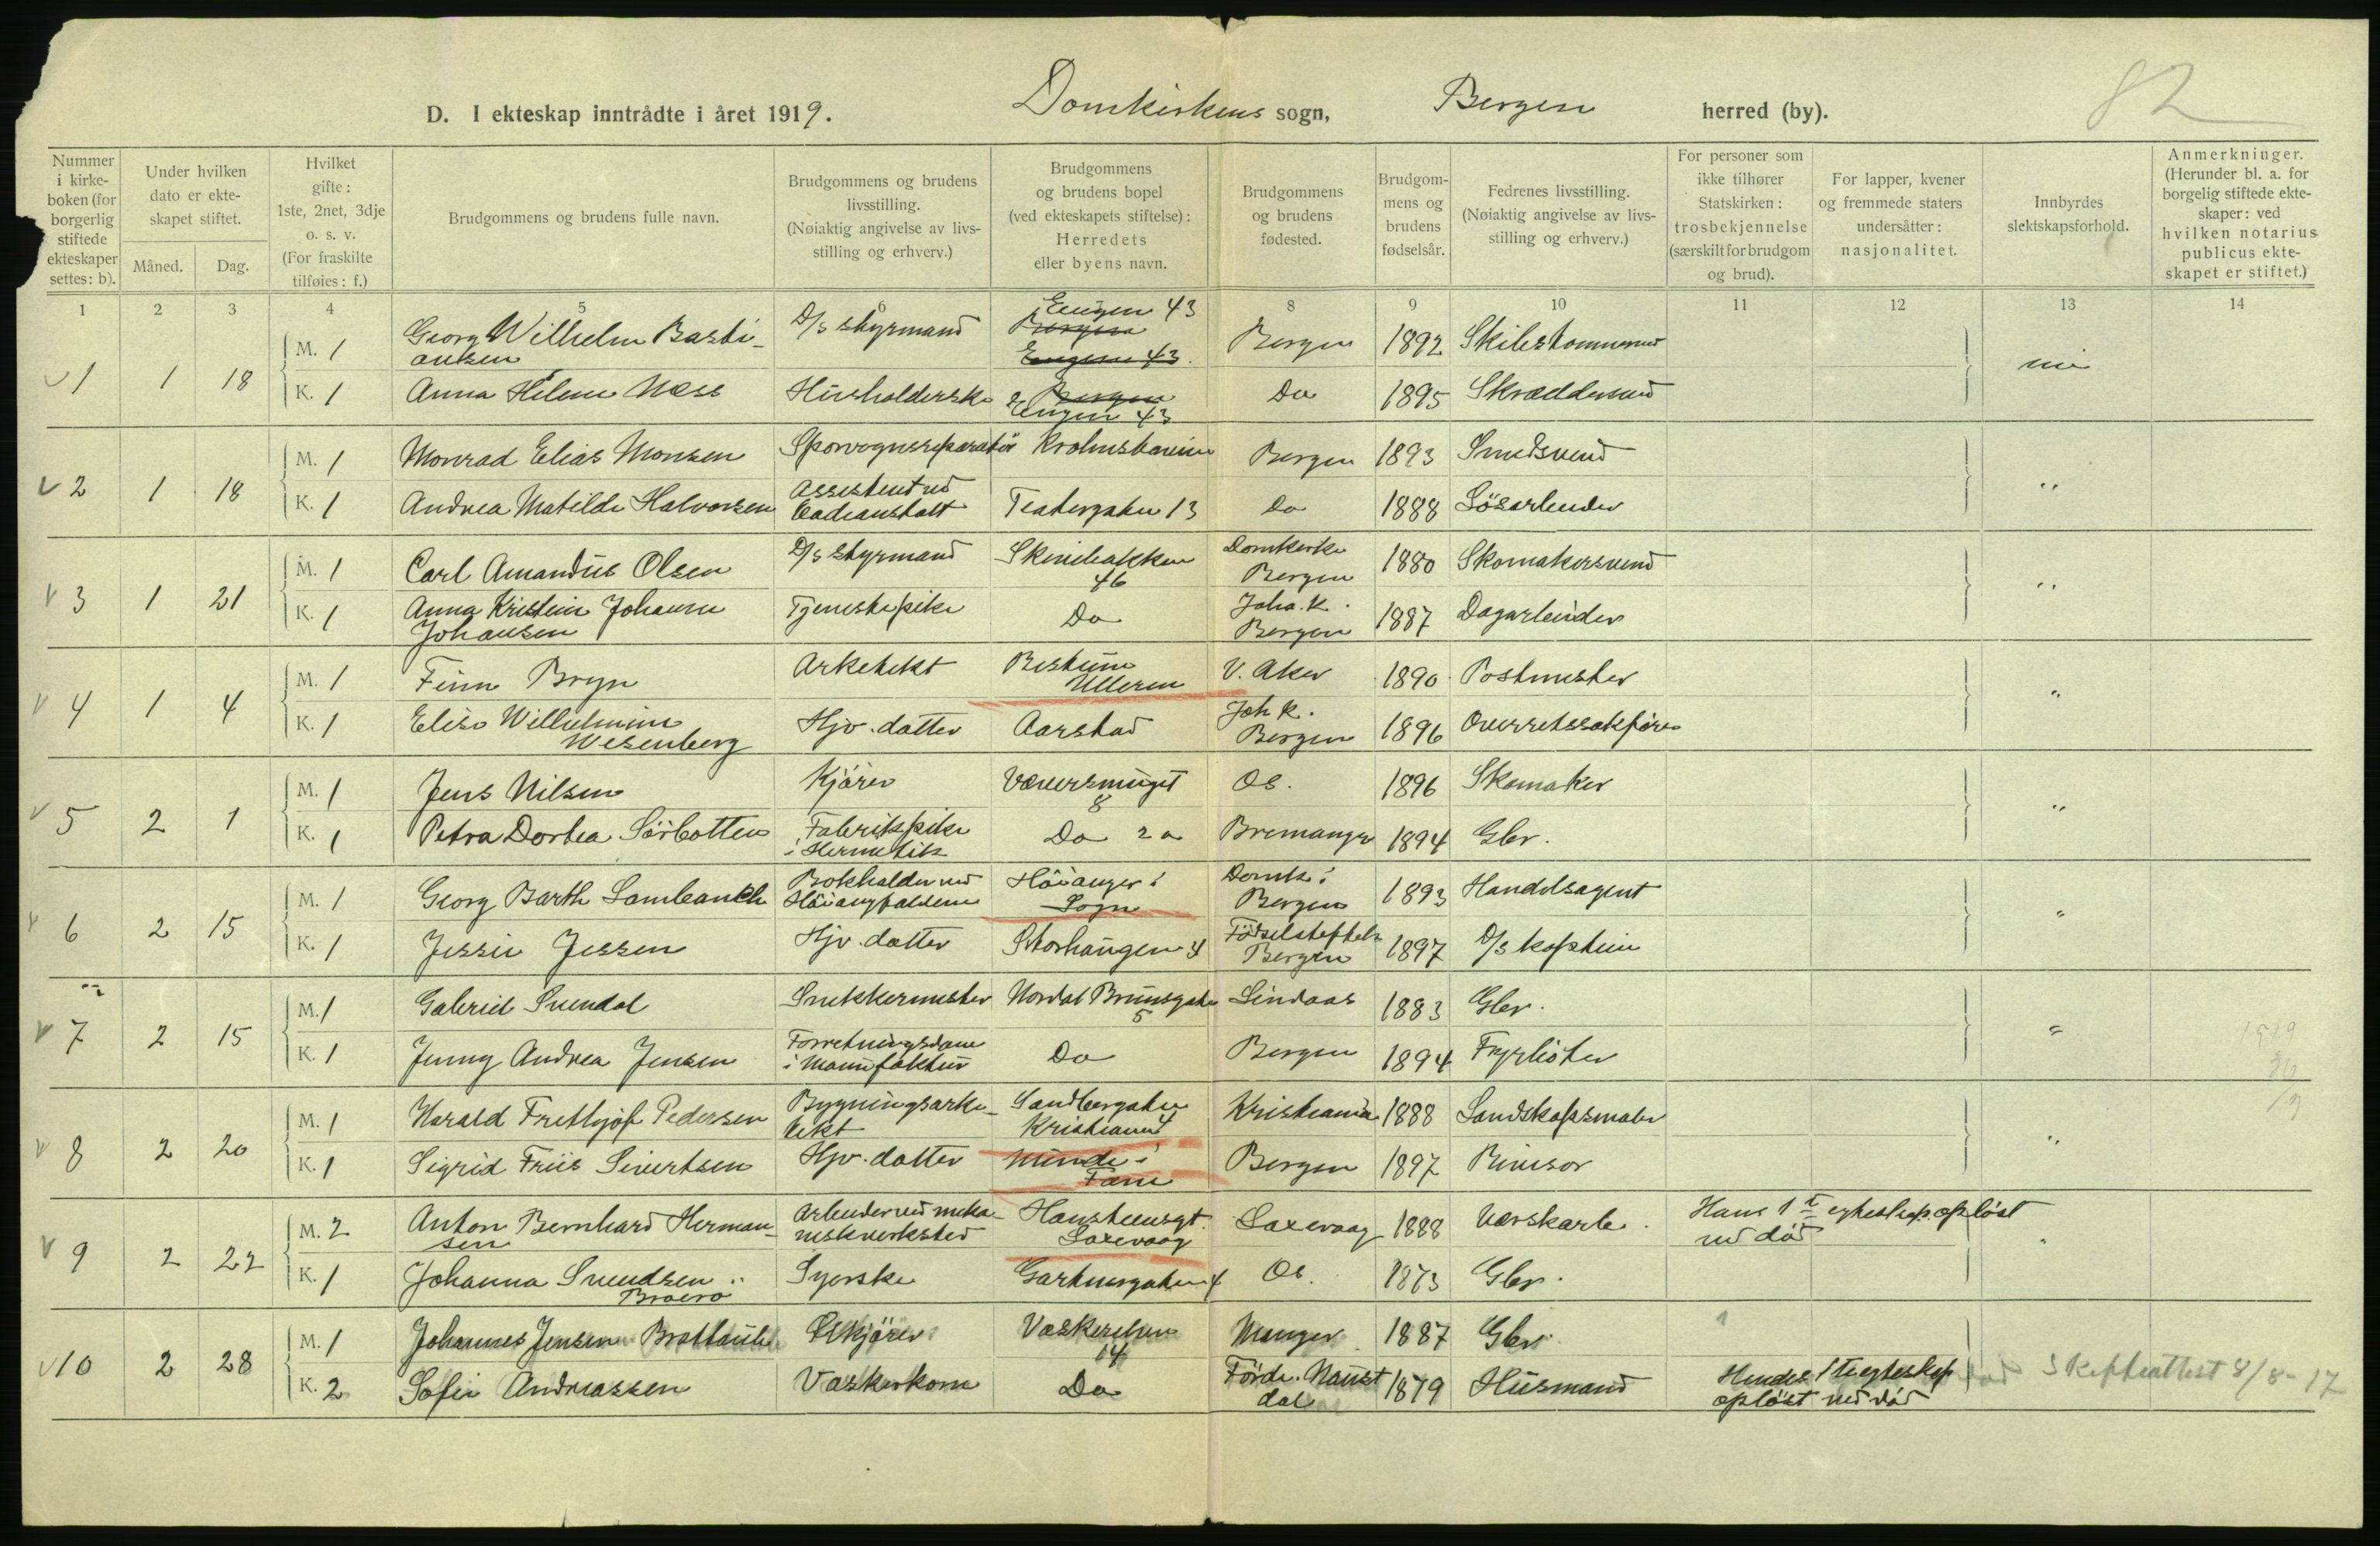 82
D. I ekteskap inntrådte i året 1919. Domkirkens sogn, Bergen herred (by).
Nummer i kirkeboken (for borgerlig stiftede ekteskaper settes: b).
Under hvilken dato er ekteskapet stiftet.
Måned. Dag.
Hvilket gifte: 1ste, 2net, 3dje o. s. v. (For fraskilte tilføies: f.)
Brudgommens og brudens fulle navn.
Brudgommens og brudens livsstilling. (Nøiaktig angivelse av livsstilling og erhverv.)
Brudgommens og brudens bopel (ved ekteskapets stiftelse): Herredets eller byens navn.
Brudgommens og brudens fødested.
Brudgommens og brudens fødselsår.
Fedrenes livsstilling. (Nøiaktig angivelse av livsstilling og erhverv.)
For personer som ikke tilhører Statskirken: trosbekjennelse (særskilt for brudgom og brud).
For lapper, kvener og fremmede staters undersåtter: nasjonalitet.
Innbyrdes slektskapsforhold.
Anmerkninger. (Herunder bl. a. for borgelig stiftede ekteskaper: ved hvilken notarius publicus ekteskapet er stiftet.)
1 2 3 4 5 6 7 8 9 10 11 12 13 14
1 1 18 M. 1 Georg Wilhelm Bastiansen D/s styrmand Engen 43 Bergen 1892
K. 1 Anna Helene Næss Husholderske Engen 43 Do 1895 Skræddersvend
2 1 18 M. 1 Monrad Elias Monsen Sporvognsreparatør Bergen 1893 Smedsvend "
K. 1 Andrea Matilde Halvorsen Assistent ved Badeanstalt Teatergaten 13 Do 1888 Løsarbeider
3 1 21 M. 1 Carl Amandus Olsen D/s styrmand Skivebakken 46 Domkirke Bergen 1880 Skomakersvend "
K. 1 Anna Kristine Johanne Johansen Tjenestepike Do Joh. K. Bergen 1887 Dagarbeider
4 1 4 M. 1 Finn Bryn Arkitekt Bestum Ulleren V. Aker 1890 Postmester "
K. 1 Elise Wilhelmine Wesenberg Hjv. datter Aarstad Joh K. Bergen 1896 Overretssakfører
5 2 1 M. 1 Jens Nilsen Kjører Væversmuget 8 Os. 1896 Skomaker "
K. 1 Petra Dortea Sørbotten Fabrikpike i Hermetik Do 2 a Bremanger 1894 Gbr.
6 2 15 M. 1 Georg Barth Bokholder ved Høiangfaldene Høianger i Sogn Domk i Bergen 1893 Handelsagent "
K. 1 Jessie Jessen Hjv. datter Storhaugen 4 Fødselsstiftels Bergen 1897 D/s kaptein
7 2 15 M. 1 Gabriel Svendal Snekkermester Nordal Brunsgaten 5 Lindaas 1883 Gbr. "
K. 1 Jenny Andrea Jensen Forretningsdame i Manufaktur Do Bergen 1894 Fyrbøter
8 2 20 M. 1 Harald Frethjof Pedersen Bygningsarkitekt Sandbergaten Kristiania Kristiania 1888 Landskapsmaler "
K. 1 Sigrid Friis Sivertsen Hjv. datter Minde i Fane Bergen 1897 Revisor
9 2 22 M. 2 Anton Bernhard Hermansen Arbeider ved mekaniskverksted Hansteensgt. Laxevaag Laxevaag 1888 Hans 1ste egteskap opløst ved død "
K. 1 Johanna Svendsen Syerske Gartnergaten 4 Os. 1873 Gbr.
10 2 28 M. 1 Johannes Jensen Ølkjører Vaskerelven 14 Manger 1887 Gbr.
K. 2 Sofie Andreassen Vaskerkone Do Førde. Naustdal 1879 Husmand Hendes 1ste egteskap opløst ved død Skifteattest 8/8-17